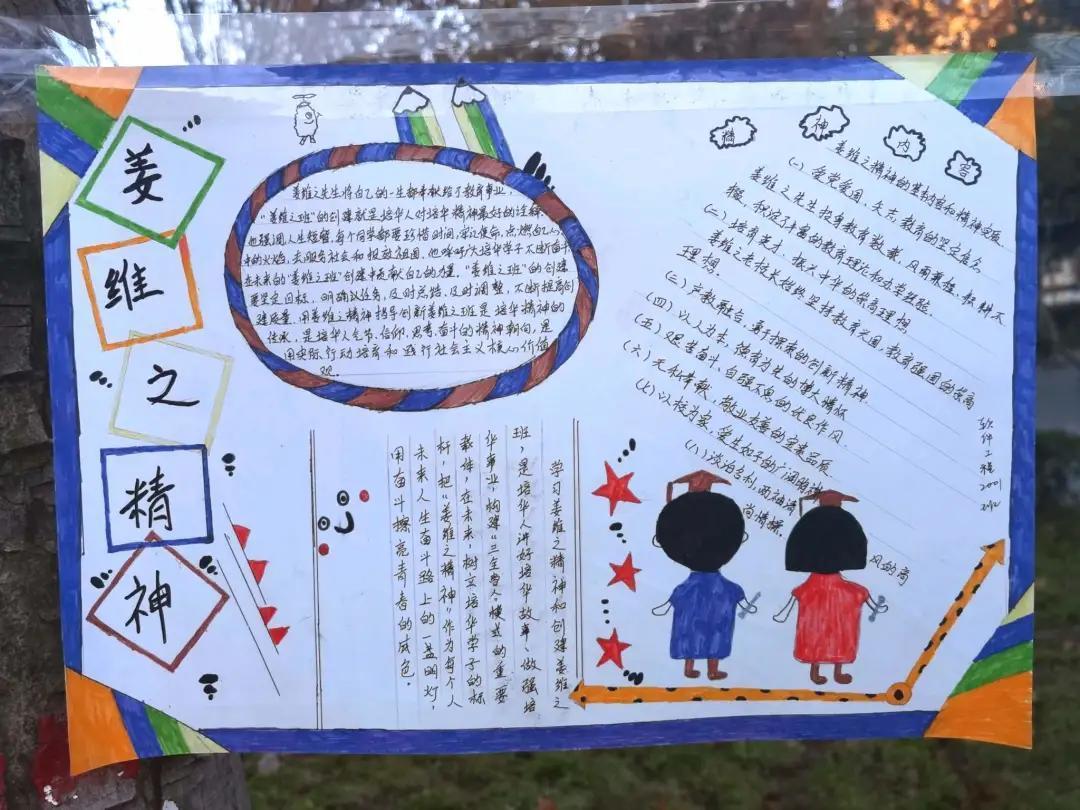 姜
维
之
精
神
姜维之先生将自己的一生都奉献给了教育事业，
“姜维之班”的创建就是培华人对培华精神最好的诠释.
也强调人生短暂，每个同学都要珍惜时间，牢记使命，点燃自己心
中的火焰，去服务社会和报效祖国，也呼吁广大培华学子不断奋斗
在未来的“姜维之班”创建中贡献自己的力量。“姜维之班”的创建
要坚定目标，明确以任务，及时总结，及时调整，不断提高创
建质量，用姜维之精神指导创新姜维之班是培华精神的
传承，是培华人气节、信仰、思考、奋斗的精神朝向，是
用实际行动培育和践行社会主义核心价值
观。
精
神
内
容
姜维之精神的基本内容和精神实质
(一) 爱党爱国，矢志教育的坚定信念
姜维之先生投身教育数载，风雨兼程，耕耘不
报，积淀了丰富的教育理论和办学经验。
(二) 培育英才，振兴中华的崇高理想
姜维之老校长始终坚持教育兴国，教育强国的崇高
理想。
(三) 产教融合，勇于探索的创新精神
(四) 以人为本，强育为生的博大情怀
(五) 艰苦奋斗、自强不息的优良作风.
(六) 无私奉献，敬业友善的宝贵品质
(七) 以校为家，爱生如子的广阔胸襟
(八) 淡泊名利，两袖清
风的高
尚情操.
软件工程2001
学习姜维之精神和创建姜维之
班，是培华人讲好培华故事、做强培
华事业，构建“三全育人”模式的重要
载体，在未来，树立培华学子的标
杆，把“姜维之精神”作为每个人
未来人生奋斗路上的一盏明灯，
用奋斗擦亮青春的底色.